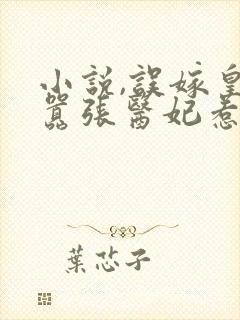 小說,誤嫁皇
囂張醫妃惹
葉芯子